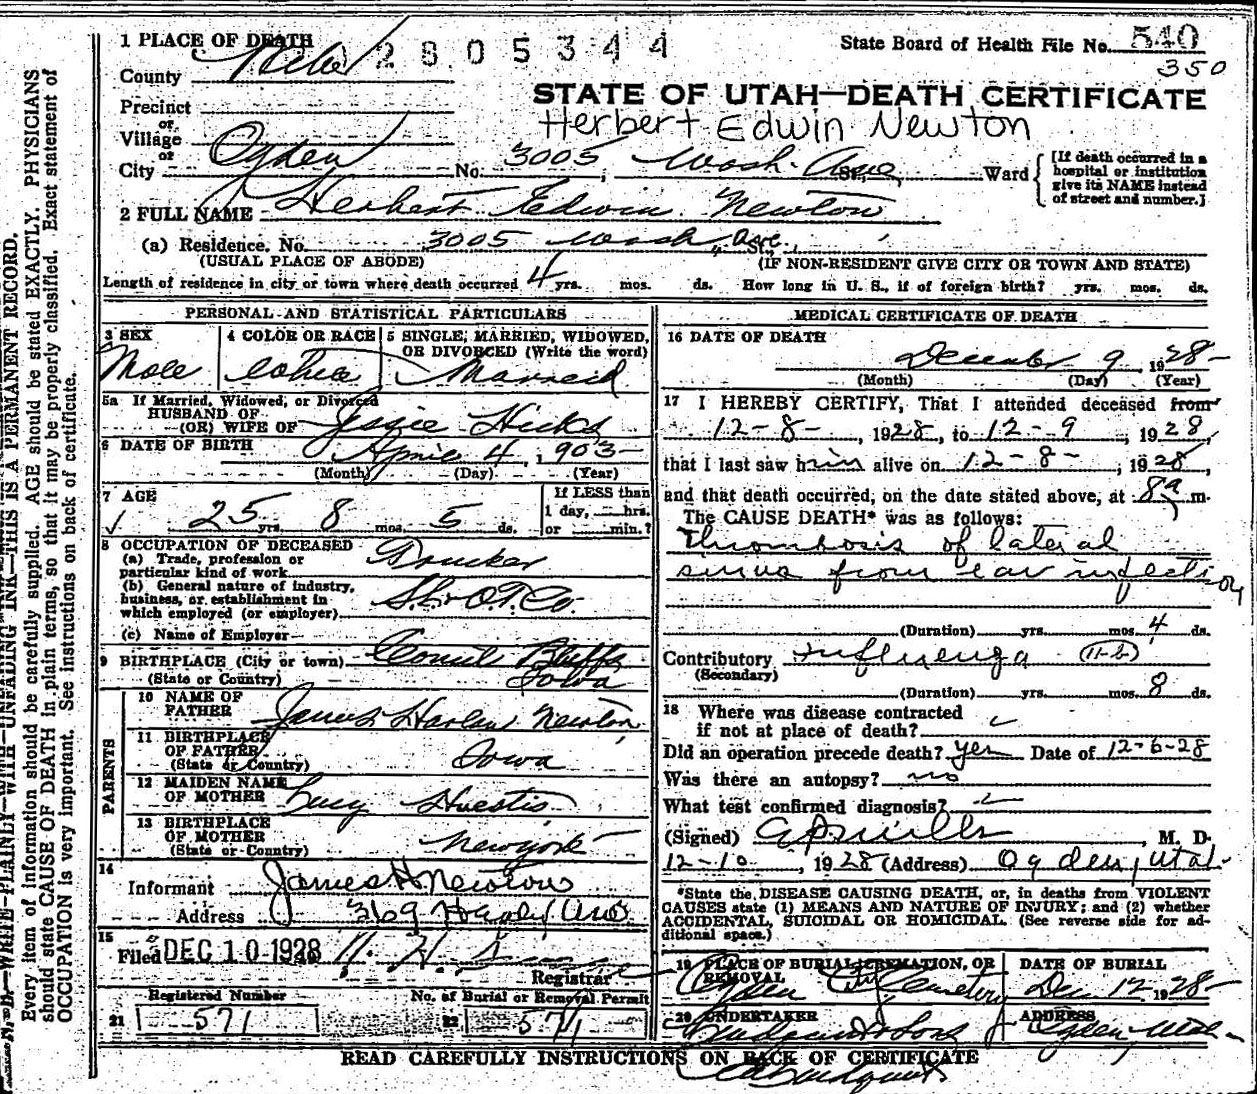 1 PLACE OF DEATH
2805344
State Board of Health File No. 540
350
County Weber
STATE OF UTAH—DEATH CERTIFICATE
Herbert Edwin Newton
Precinct
or
Village
or
City Ogden No. 3005 Wash. Ave St., Ward
[If death occurred in a
hospital or institution
give its NAME instead
of street and number.]
2 FULL NAME Herbert Edwin Newton
(a) Residence. No. 3005 Wash. Ave St.,
(USUAL PLACE OF ABODE) (IF NON-RESIDENT GIVE CITY OR TOWN AND STATE)
Length of residence in city or town where death occurred 4 yrs. mos. ds. How long in U. S., if of foreign birth? yrs. mos. ds.
PERSONAL AND STATISTICAL PARTICULARS
3 SEX 4 COLOR OR RACE 5 SINGLE, MARRIED, WIDOWED,
OR DIVORCED (Write the word)
Male Married
5a If Married, Widowed, or Divorced
HUSBAND OF
(OR) WIFE OF Jessie Hicks
6 DATE OF BIRTH April 4, 1903
(Month) (Day) (Year)
7 AGE If LESS than
1 day, hrs.
25 yrs. 8 mos. 5 ds. or min.?
8 OCCUPATION OF DECEASED
(a) Trade, profession or
particular kind of work
(b) General nature of industry,
business, or establishment in
which employed (or employer)
(c) Name of Employer
9 BIRTHPLACE (City or town) Council Bluffs
(State or Country) Iowa
PARENTS
10 NAME OF
FATHER James Harlen Newton
11 BIRTHPLACE
OF FATHER
(State or Country) Iowa
12 MAIDEN NAME
OF MOTHER Lucy Huestis
13 BIRTHPLACE
OF MOTHER
(State or Country) New York
14
Informant James H Newton
Address 369 Healy Ave
15
Filed DEC 10 1928
Registrar
Registered Number No. of Burial or Removal Permit
21 571 22 571
MEDICAL CERTIFICATE OF DEATH
16 DATE OF DEATH
December 9, 1928
(Month) (Day) (Year)
17 I HEREBY CERTIFY, That I attended deceased from
12-8-, 1928, to 12-9, 1928,
that I last saw him alive on 12-8-, 1928,
and that death occurred, on the date stated above, at 8a m.
The CAUSE DEATH* was as follows:
Thrombosis of lateral
sinus from ear infection
(Duration) yrs. mos. 4 ds.
Contributory Influenza (11-b)
(Secondary)
(Duration) yrs. mos. 8 ds.
18 Where was disease contracted
if not at place of death?
Did an operation precede death? yes Date of 12-6-28
Was there an autopsy? no
What test confirmed diagnosis?
(Signed) M. D.
12-10, 1928 (Address) Ogden, Utah
*State the DISEASE CAUSING DEATH, or, in deaths from VIOLENT
CAUSES state (1) MEANS AND NATURE OF INJURY; and (2) whether
ACCIDENTAL, SUICIDAL OR HOMICIDAL. (See reverse side for ad-
ditional space.)
19 PLACE OF BURIAL, CREMATION, OR DATE OF BURIAL
REMOVAL
Ogden City Cemetery Dec 12 1928
20 UNDERTAKER ADDRESS
& Sons Ogden, Utah
READ CAREFULLY INSTRUCTIONS ON BACK OF CERTIFICATE
N. B.—WRITE PLAINLY WITH UNFADING INK—THIS IS A PERMANENT RECORD.
Every item of information should be carefully supplied. AGE should be stated EXACTLY. PHYSICIANS
should state CAUSE OF DEATH in plain terms, so that it may be properly classified. Exact statement of
OCCUPATION is very important. See instructions on back of certificate.